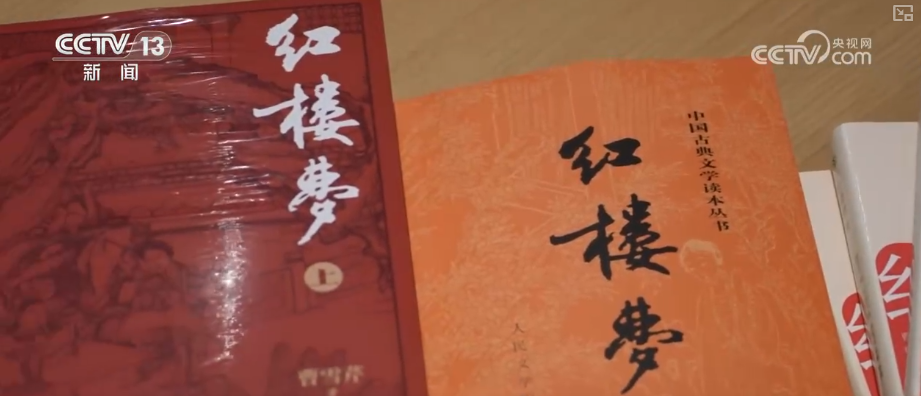 CCTV 13
新闻
央视网
CCTV.com
红楼梦
上
曹雪芹
中国古典文学读本丛书
红楼梦
人民文学